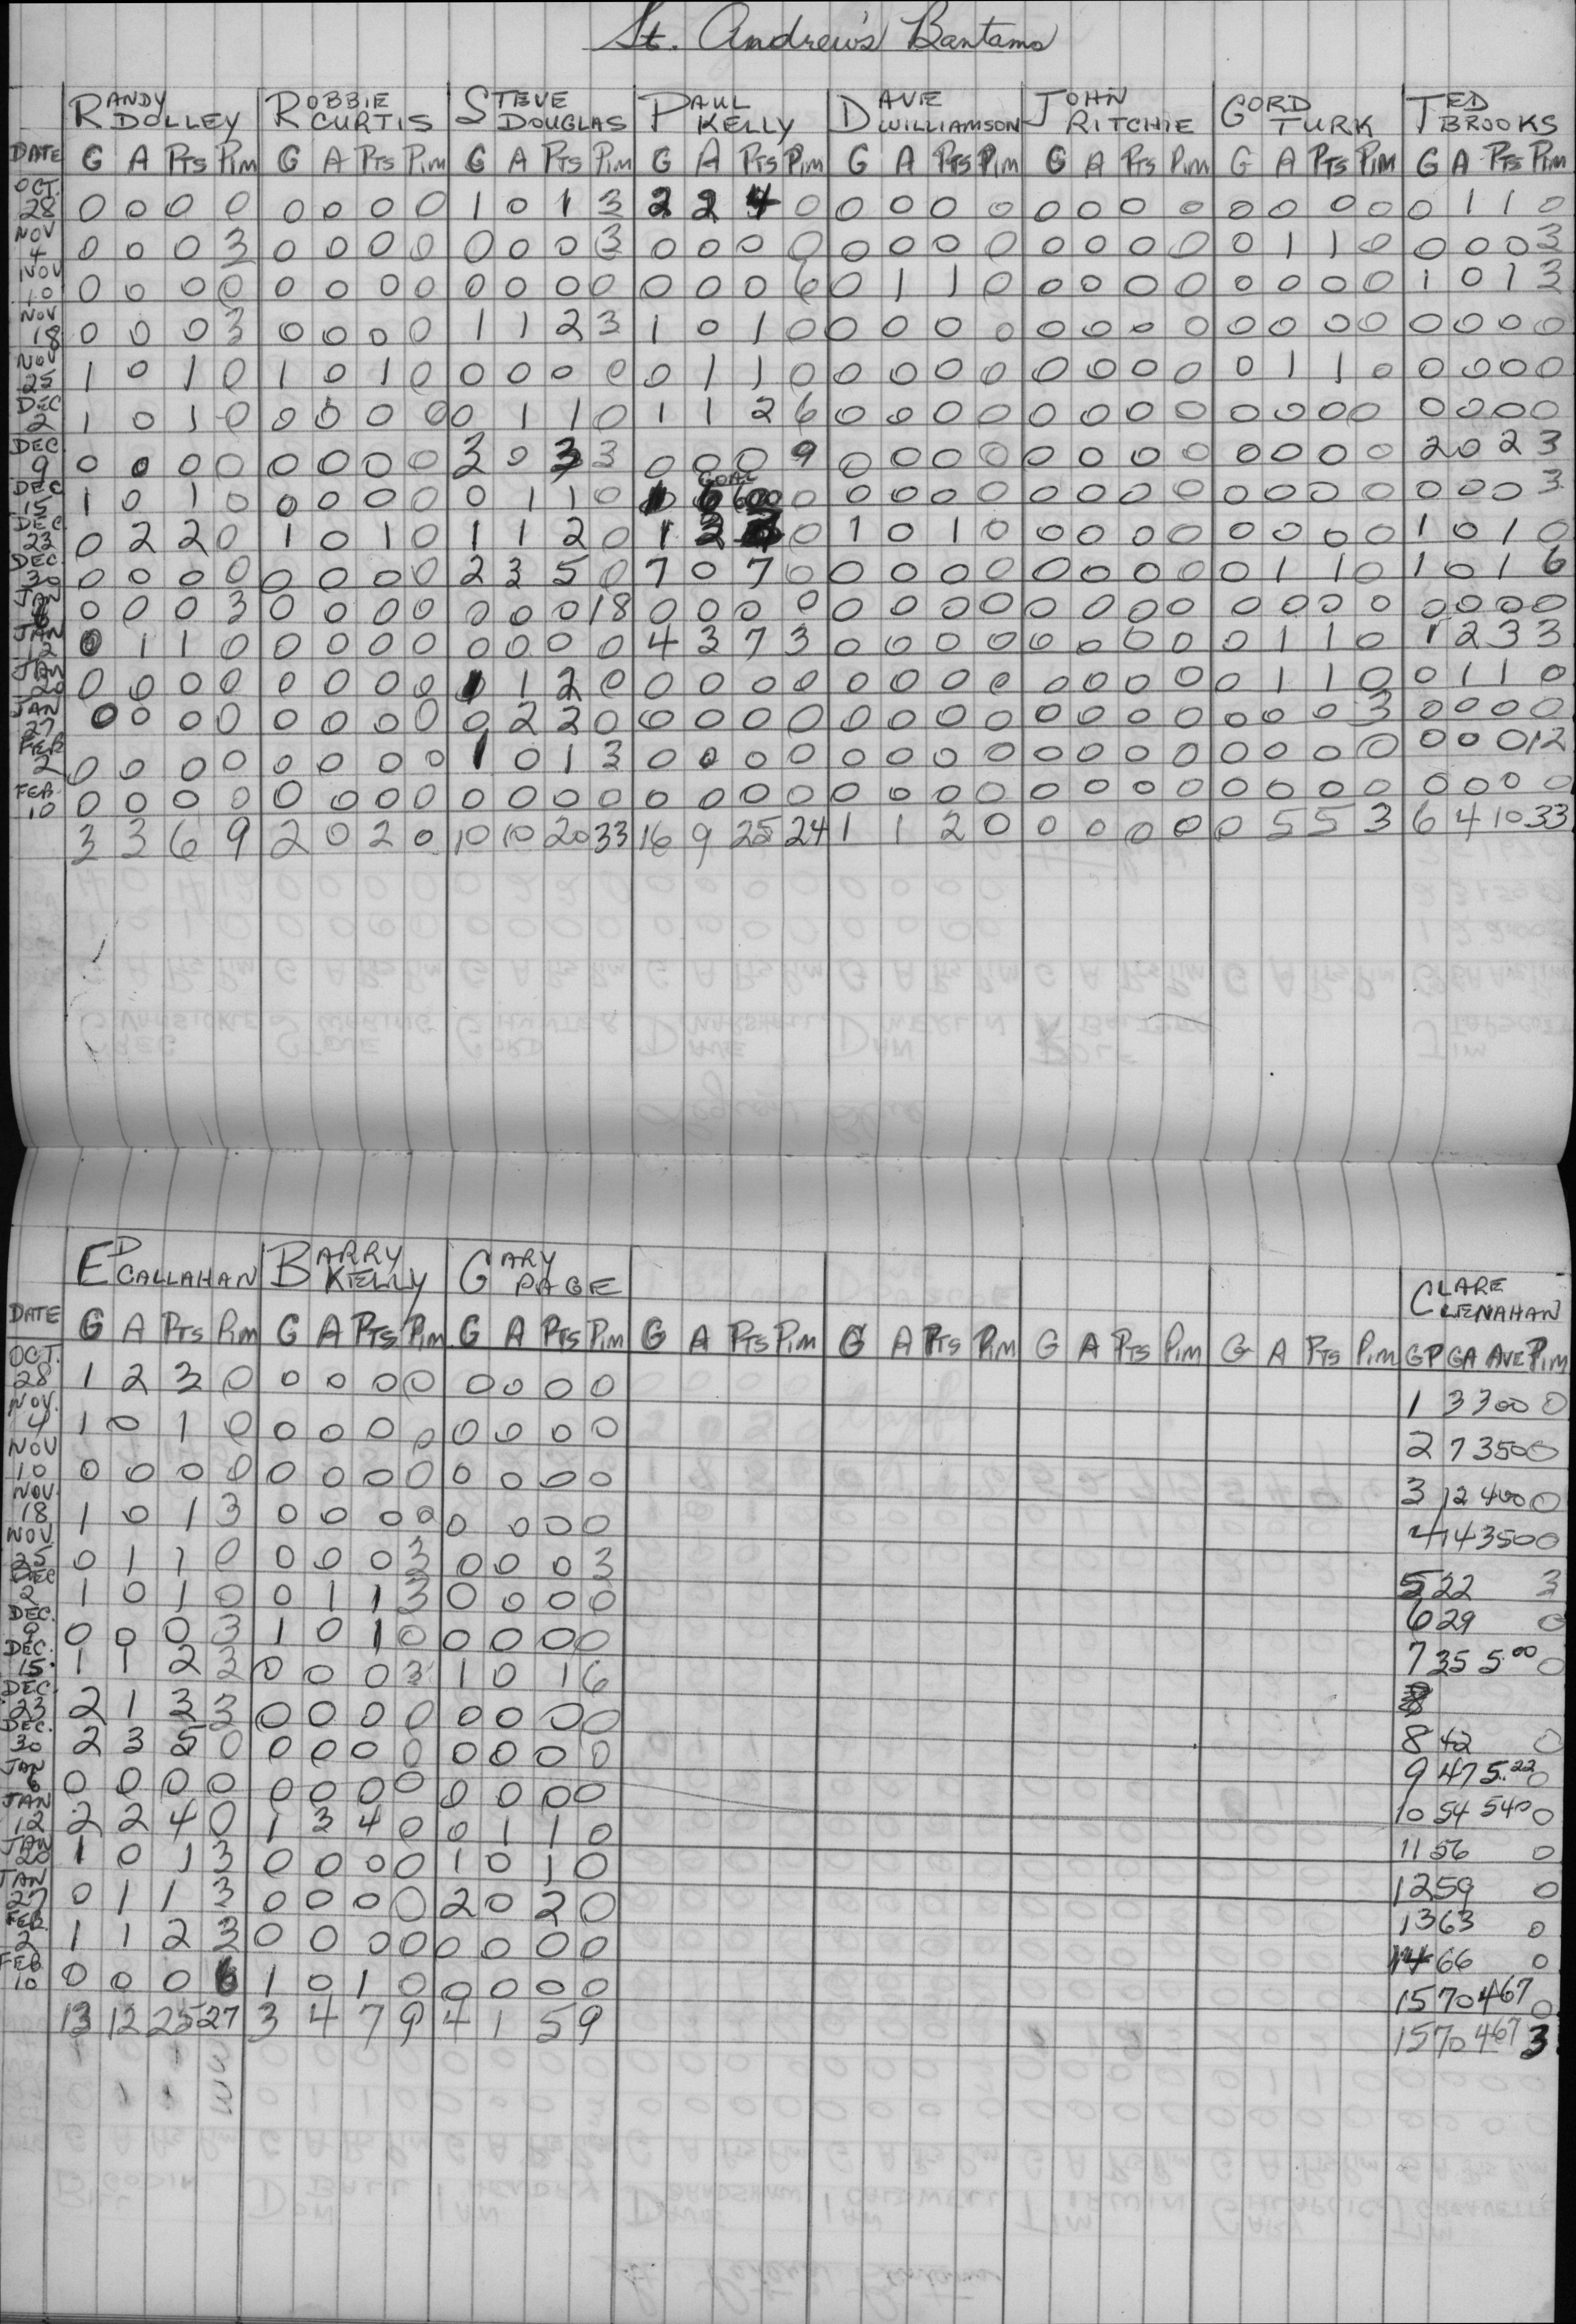 St. Andrew's Bantams
RANDY DOLLEY ROBBIE CURTIS STEVE DOUGLAS PAUL KELLY DAVE WILLIAMSON JOHN RITCHIE GORD TURK TED BROOKS
DATE G A PTS PIM G A PTS PIM G A PTS PIM G A PTS PIM G A PTS PIM G A PTS PIM G A PTS PIM G A PTS PIM
OCT. 28 0 0 0 0 0 0 0 0 1 0 1 3 2 2 4 0 0 0 0 0 0 0 0 0 0 0 0 0 0 1 1 0
NOV 4 0 0 0 3 0 0 0 0 0 0 0 3 0 0 0 0 0 0 0 0 0 0 0 0 0 1 1 0 0 0 0 3
NOV 10 0 0 0 0 0 0 0 0 0 0 0 0 0 0 0 6 0 1 1 0 0 0 0 0 0 0 0 0 1 0 1 3
NOV 18 0 0 0 3 0 0 0 0 1 1 2 3 1 0 1 0 0 0 0 0 0 0 0 0 0 0 0 0 0 0 0 0
NOV 25 1 0 1 0 1 0 1 0 0 0 0 0 0 1 1 0 0 0 0 0 0 0 0 0 0 1 1 0 0 0 0 0
DEC 2 1 0 1 0 0 0 0 0 0 1 1 0 1 1 2 6 0 0 0 0 0 0 0 0 0 0 0 0 0 0 0 0
DEC. 9 0 0 0 0 0 0 0 0 3 0 3 3 0 0 0 9 0 0 0 0 0 0 0 0 0 0 0 0 2 0 2 3
GOAL
DEC 15 1 0 1 0 0 0 0 0 0 1 1 0 1 6 600 0 0 0 0 0 0 0 0 0 0 0 0 0 0 0 0 3
DEC 23 0 2 2 0 1 0 1 0 1 1 2 0 1 2 0 1 0 1 0 0 0 0 0 0 0 0 0 1 0 1 0
DEC. 30 0 0 0 0 0 0 0 0 2 3 5 0 7 0 7 0 0 0 0 0 0 0 0 0 0 1 1 0 1 0 1 6
JAN 6 0 0 0 3 0 0 0 0 0 0 0 18 0 0 0 0 0 0 0 0 0 0 0 0 0 0 0 0 0 0 0 0
JAN 12 0 1 1 0 0 0 0 0 0 0 0 0 4 3 7 3 0 0 0 0 0 0 0 0 0 1 1 0 1 2 3 3
JAN 20 0 0 0 0 0 0 0 0 1 1 2 0 0 0 0 0 0 0 0 0 0 0 0 0 0 1 1 0 0 1 1 0
JAN 27 0 0 0 0 0 0 0 0 0 2 2 0 0 0 0 0 0 0 0 0 0 0 0 0 0 0 0 3 0 0 0 0
FEB 2 0 0 0 0 0 0 0 0 1 0 1 3 0 0 0 0 0 0 0 0 0 0 0 0 0 0 0 0 0 0 0 12
FEB 10 0 0 0 0 0 0 0 0 0 0 0 0 0 0 0 0 0 0 0 0 0 0 0 0 0 0 0 0 0 0 0 0
3 3 6 9 2 0 2 0 10 10 20 33 16 9 25 24 1 1 2 0 0 0 0 0 0 5 5 3 6 4 10 33
ED CALLAHAN BARRY KELLY GARY PAGE CLARE CLENAHAN
DATE G A PTS PIM G A PTS PIM G A PTS PIM G A PTS PIM G A PTS PIM G A PTS PIM G A PTS PIM GP GA AVE PIM
OCT. 28 1 2 3 0 0 0 0 0 0 0 0 0 1 3 300 0
NOV. 4 1 0 1 0 0 0 0 0 0 0 0 0 2 7 350 0
NOV 10 0 0 0 0 0 0 0 0 0 0 0 0 3 12 400 0
NOV. 18 1 0 1 3 0 0 0 0 0 0 0 0 4 14 350 0
NOV 25 0 1 1 0 0 0 0 3 0 0 0 3 5 22 3
DEC 2 1 0 1 0 0 1 1 3 0 0 0 0 6 29 0
DEC. 9 0 0 0 3 1 0 1 0 0 0 0 0 7 35 5.00 0
DEC. 15 1 1 2 3 0 0 0 3 1 0 1 6 8
DEC. 23 2 1 3 3 0 0 0 0 0 0 0 0 8 42 0
DEC. 30 2 3 5 0 0 0 0 0 0 0 0 0 9 47 5.22 0
JAN 6 0 0 0 0 0 0 0 0 0 0 0 0 10 54 540 0
JAN 12 2 2 4 0 1 3 4 0 0 1 1 0 11 56 0
JAN 20 1 0 1 3 0 0 0 0 1 0 1 0 12 59 0
JAN 27 0 1 1 3 0 0 0 0 2 0 2 0 13 63 0
FEB. 2 1 1 2 3 0 0 0 0 0 0 0 0 14 66 0
FEB 10 0 0 0 6 1 0 1 0 0 0 0 0 15 70 467 0
13 12 25 27 3 4 7 9 4 1 5 9 15 70 467 3